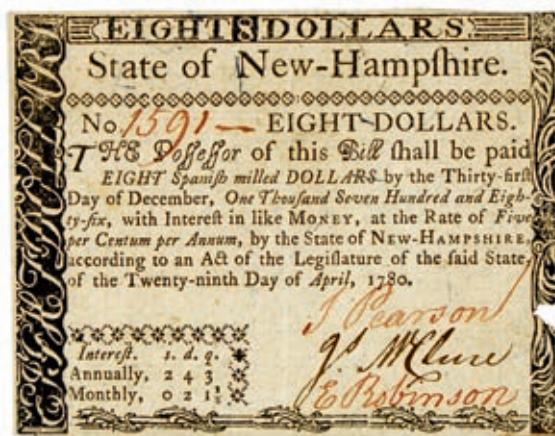 EIGHT 8 DOLLARS
State of New-Hampſhire.
No. 1591 — EIGHT-DOLLARS.
THE Poſſeſſor of this Bill ſhall be paid
EIGHT Spaniſh milled DOLLARS by the Thirty-firſt
Day of December, One Thouſand Seven Hundred and Eigh-
ty-ſix, with Intereſt in like MONEY, at the Rate of Five
per Centum per Annum, by the State of NEW-HAMPSHIRE,
according to an Act of the Legiſlature of the ſaid State,
of the Twenty-ninth Day of April, 1780.
J Pearson
Js McClure
E Robinson
Intereſt. s. d. q.
Annually, 2 4 3
Monthly, 0 2 1